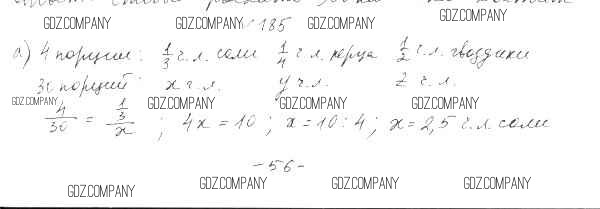 GDZ.COMPANY GDZ.COMPANY 185 GDZ.COMPANY GDZ.COMPANY
а) 4 порции: 1/3 ч.л. соли 1/4 ч.л. перца 1/2 ч.л. гвоздики
30 порций x ч.л. y ч.л. z ч.л.
GDZ.COMPANY GDZ.COMPANY GDZ.COMPANY GDZ.COMPANY
4/30 = 1/3/x ; 4x = 10 ; x = 10 : 4 ; x = 2,5 ч.л. соли
- 56 -
GDZ.COMPANY GDZ.COMPANY GDZ.COMPANY GDZ.COMPANY